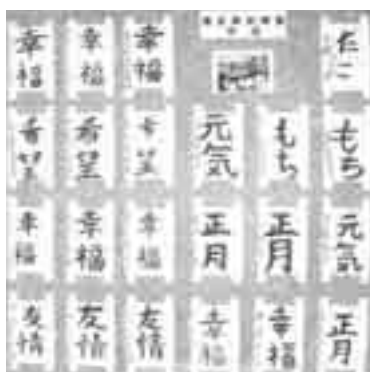 幸福
幸福
幸福
たこ
希望
希望
希望
元気
もち
もち
幸福
幸福
幸福
正月
正月
元気
友情
友情
友情
幸福
幸福
正月